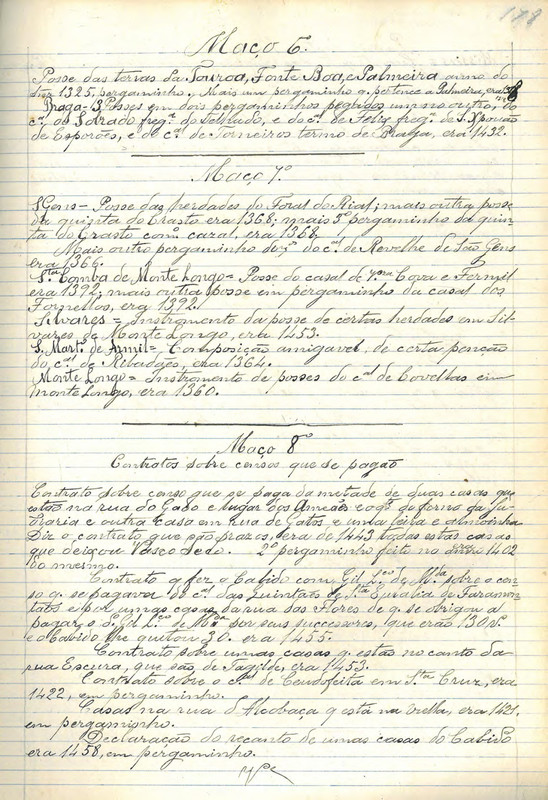 Maço 6.
Posse das terras da Touroa, Fonte Boa, e Palmeira anno do
1325, pergaminho. Mais um pergaminho q. pertence a Palmeira, era
Braga = 3 Posses em dois pergaminhos pegados um no outro, do
c.al do Sobrado freg.ª de Sobrado, e do c.al de Feliz freg.ª de S. Xpovão
de Esporões, e do c.al de Torneiros termo de Braga, era 1432.
Maço 7º
S. Gens = Posse das herdades do Foral do Rial; mais outra posse
da quinta do Crasto era 1368; mais 3º pergaminho da quin-
ta do Crasto com o caral, era 1368.
Mais outro pergaminho do c.al de Revelhe de São Gens
era 1366.
S.ta Comba de Monte Longo = Posse do casal de Cova e Fermil
era 1372, mais outra posse em pergaminho da casal dos
Fornellos, era 1392.
Silvares = Instrumento da posse de certas herdades em Sil-
vares de Monte Longo, era 1453.
S. Mart.º de Armil = Composição amigavel, de certa penção
do c.al de Abadage, era 1364.
Monte Longo = Instromento de posses do c.al de Covellas em
Monte Longo, era 1360.
Maço 8º
Contratos sobre censos que se pagão
Contrato sobre censo que se paga da metade de duas casas que
estão na rua do Gado e lugar dos Ameaes e o q.al do forno da
e outra casa em rua de Gatos, e uma feita e
Diz o contrato que são prazos, era de 1443 todas estas casas
que deixou Vasco Ledo. 2º pergaminho feito no 1402
do mesmo.
Contrato q. fez o Cabido com Gil L.ço de M.da sobre o cen-
so q. se pagava do c.al das Quintãs de S.ta Eulalia de Faramon-
tãos e por umas casas da rua das Flores de q. se obrigou a
pagar, o S.r Gil L.ço de M.da por seus successores, que erão 130
e o Cabido lhe quitou 30. era 1455.
Contrato sobre umas casas q. estão no canto da
rua Escura, que são de Tagilde, era 1453.
Contrato sobre o c.al de Ceudofeita em S.ta Cruz, era
1422, em pergaminho.
Casas na rua d'Alcobaça q. está na Vielha, era 1421,
em pergaminho.
Declaração do recanto de umas casas do Cabido
era 1458, em pergaminho.